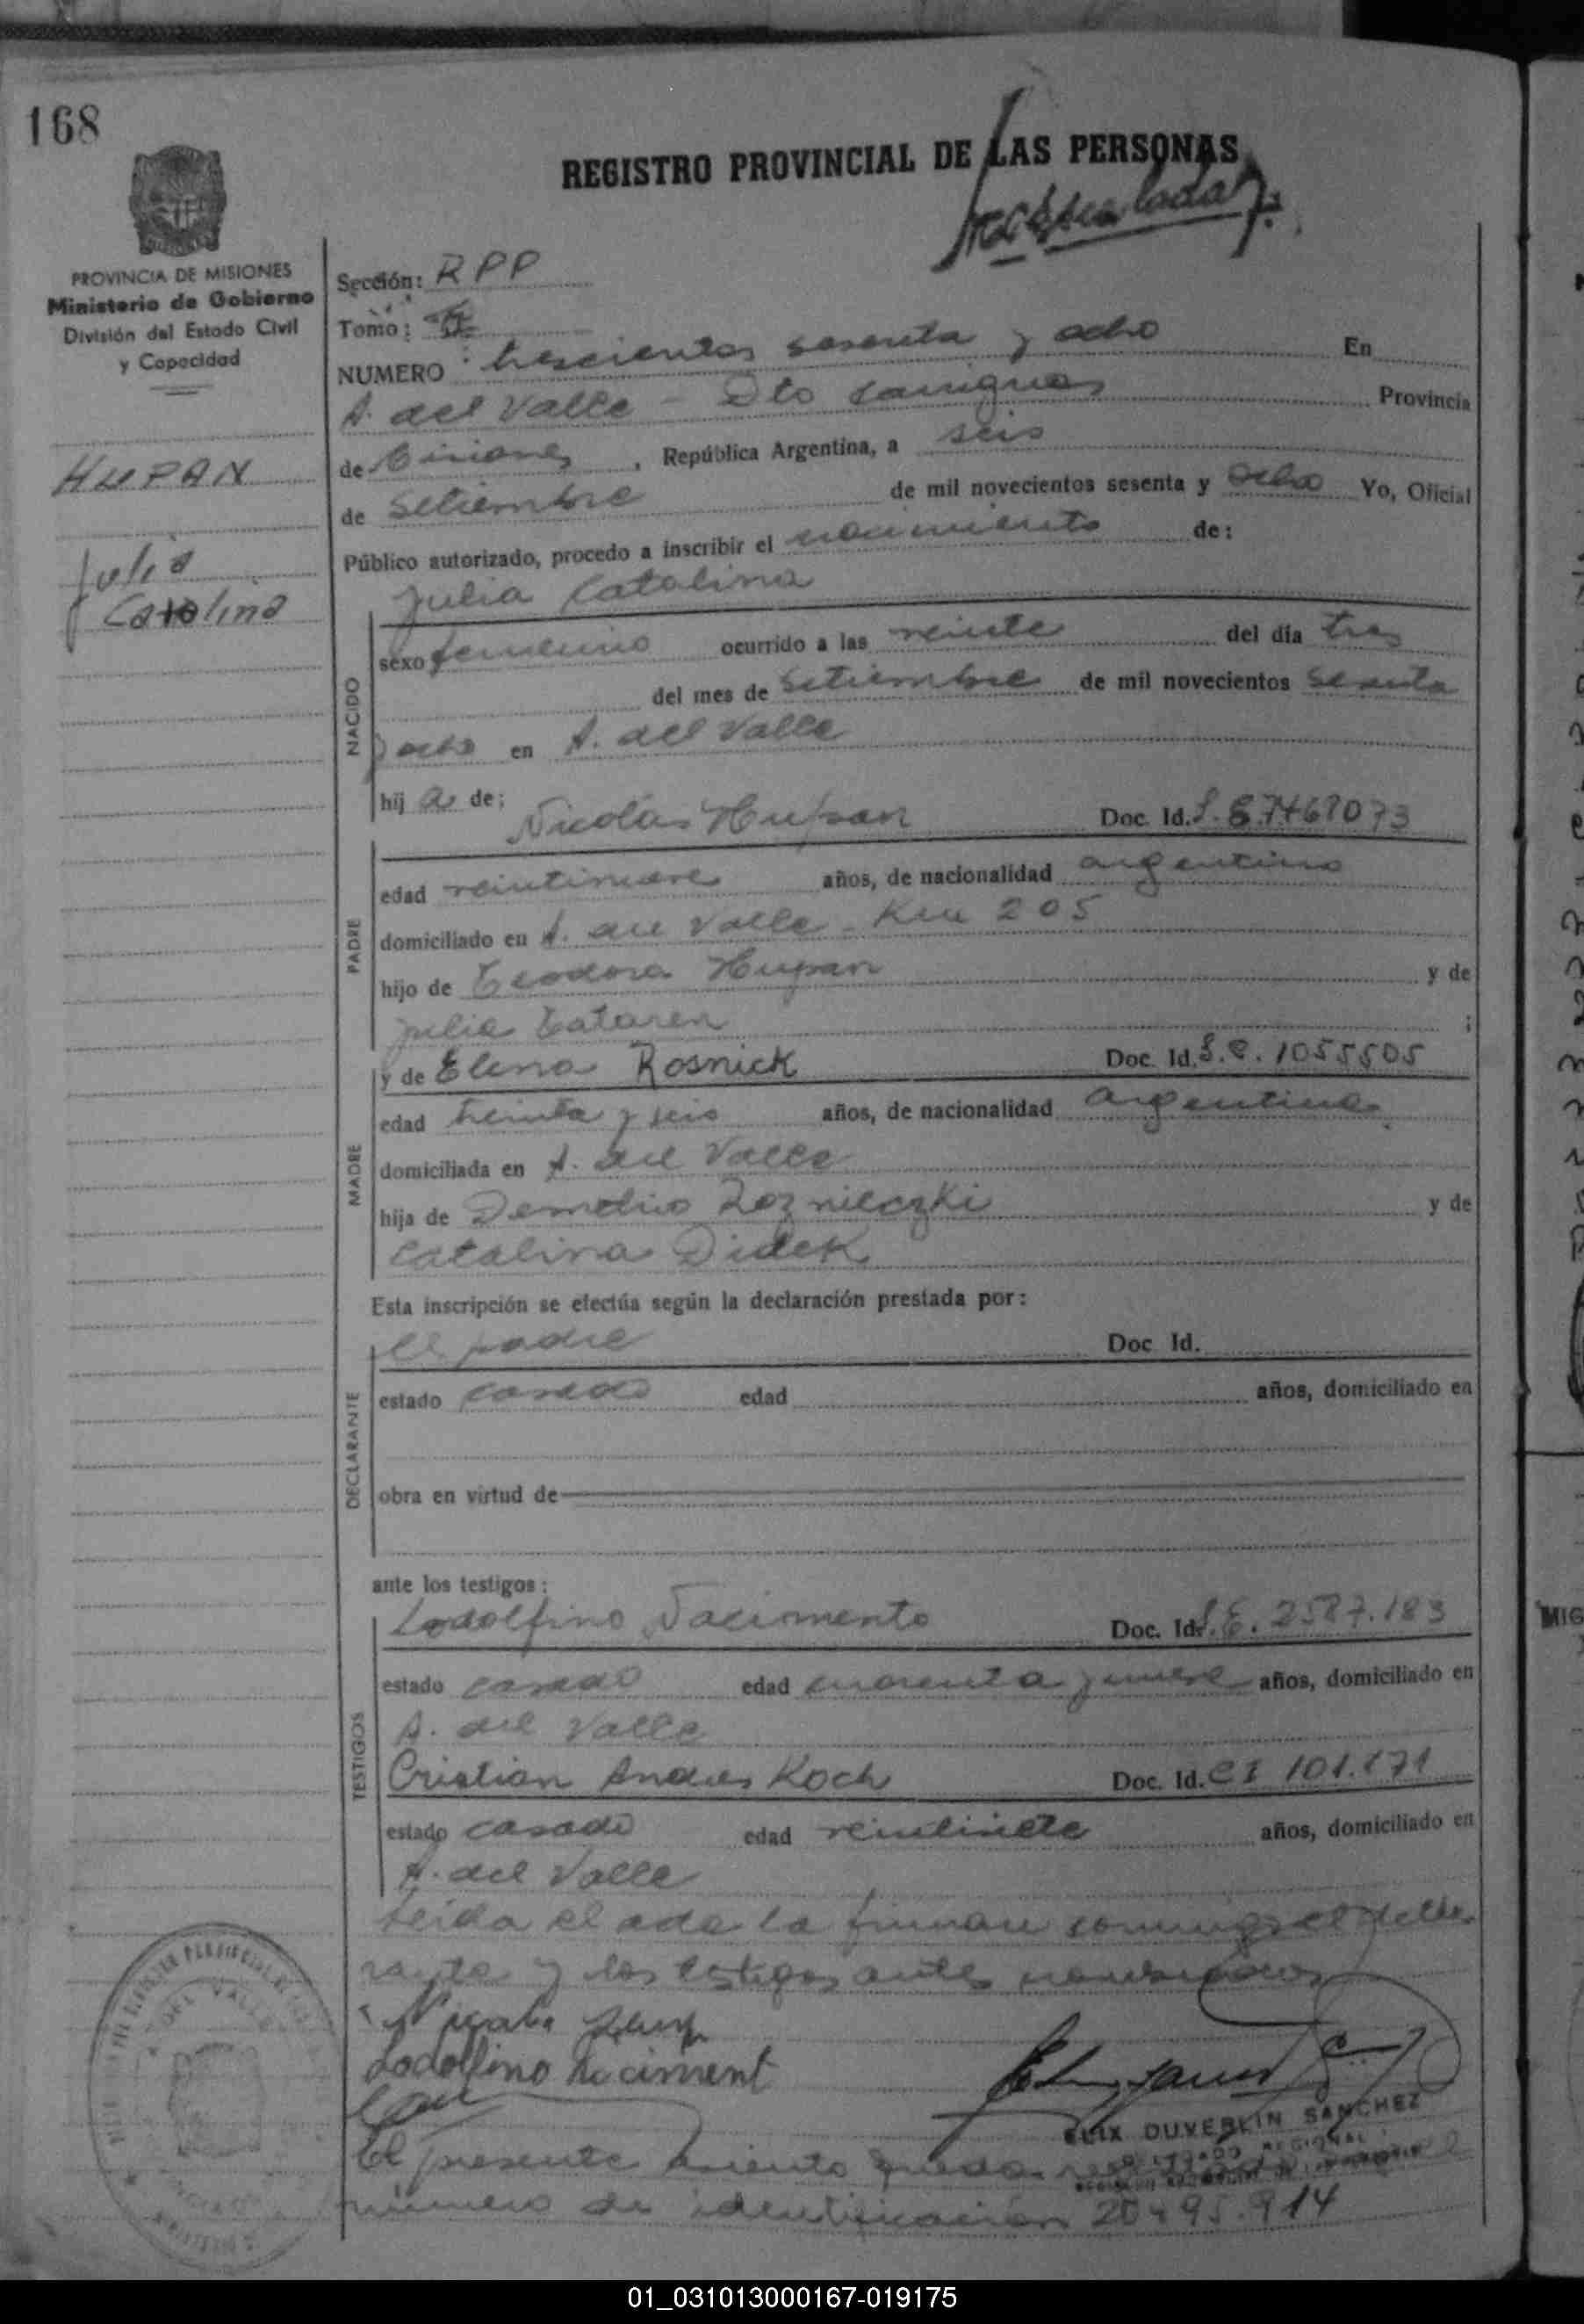 168
REGISTRO PROVINCIAL DE LAS PERSONAS
PROVINCIA DE MISIONES
Ministerio de Gobierno
División del Estado Civil
y Capacidad
HUPAN
Julia
Catalina
Sección: RPP
Tomo: II
NUMERO: trescientos sesenta y ocho En
A. del Valle - Dto Cainguas Provincia
de Misiones, República Argentina, a seis
de setiembre de mil novecientos sesenta y ocho Yo, Oficial
Público autorizado, procedo a inscribir el nacimiento de:
Julia Catalina
NACIDO
sexo femenino ocurrido a las veinte del día tres
del mes de setiembre de mil novecientos sesenta
y ocho en A. del Valle
hija de:
Nicolás Hupan Doc. Id.
PADRE
edad veintinueve años, de nacionalidad argentino
domiciliado en A. del Valle - Km 205
hijo de Teodoro Hupan y de
Julia Tataren;
y de Elena Rosnick Doc. Id. 1055505
MADRE
edad treinta y seis años, de nacionalidad argentina
domiciliada en A. del Valle
hija de Demetrio Rozнieczki y de
Catalina Didek
Esta inscripción se efectúa según la declaración prestada por:
El padre Doc. Id.
DECLARANTE
estado casado edad años, domiciliado en
obra en virtud de
ante los testigos:
TESTIGOS
Lodolfino Nacimento Doc. Id. L.E. 2587.183
estado casado edad cuarenta y nueve años, domiciliado en
A. del Valle
Cristian Andres Koch Doc. Id. CI 101.171
estado casado edad veintisiete años, domiciliado en
A. del Valle
Leida el acta la firman conmigo el decla
rante y los testigos antes nombrados
Lodolfino Naciment
FELIX DUVERLIN SANCHEZ
El presente asiento queda
número de identificación 20495.914
01_031013000167-019175